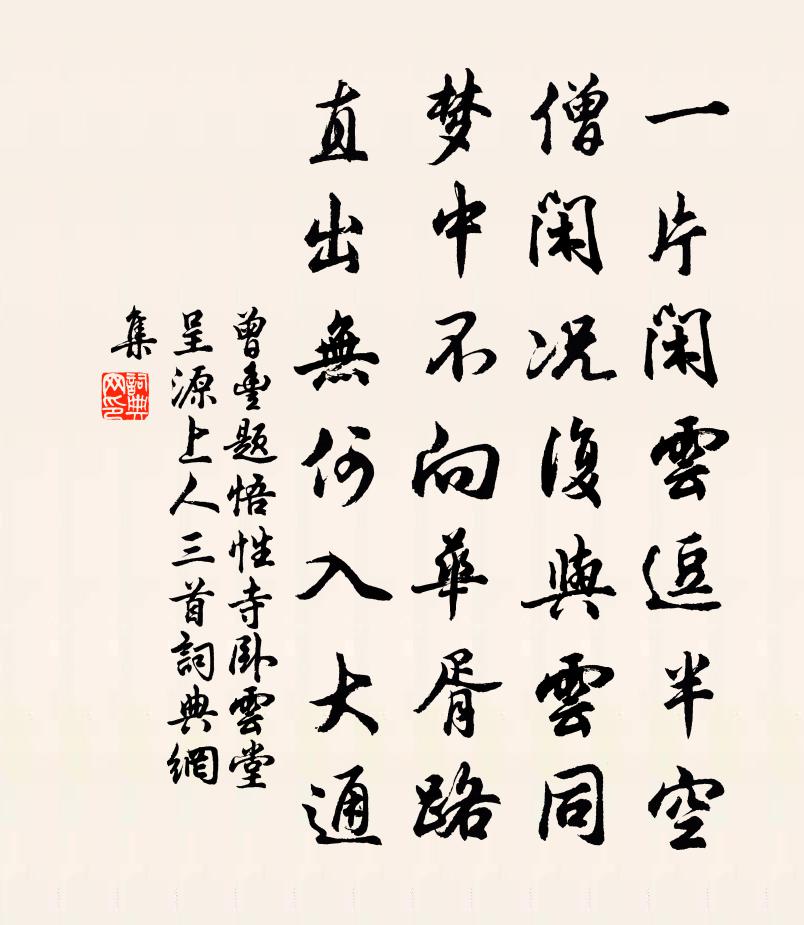 一片闲雲逗半空
僧闲况復與雲同
梦中不向華胥路
直出無何入大通
曾豐题悟性寺卧雲堂
呈源上人三首詞典網
集
詞典网印